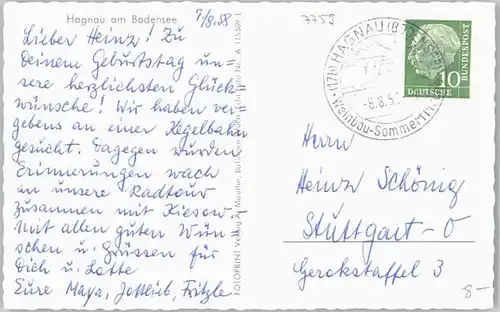 Hagnau am Bodensee
7/8.58
7759
Lieber Heinz! Zu
Deinem Geburtstag un=
sere herzlichsten Glück
wünsche! Wir haben ver
gebens an einer Kegelbahn
gesucht. Dagegen wurden
Erinnerungen wach
an unsere Radtour
zusammen mit Kieson
Mit allen guten Wün
schen u. Grüssen für
Dich u. Lotte
Eure Maya, Gottlieb, Fritzle
FOTOPRINT Verlag
Nr. A 115509 L
(17b) HAGNAU (BODENSEE)
-6.8.5
Weinbau-Sommerfrische
10
DEUTSCHE
BUNDESPOST
Herrn
Heinz Schönig
Stuttgart-O
Gerokstaffel 3
8-